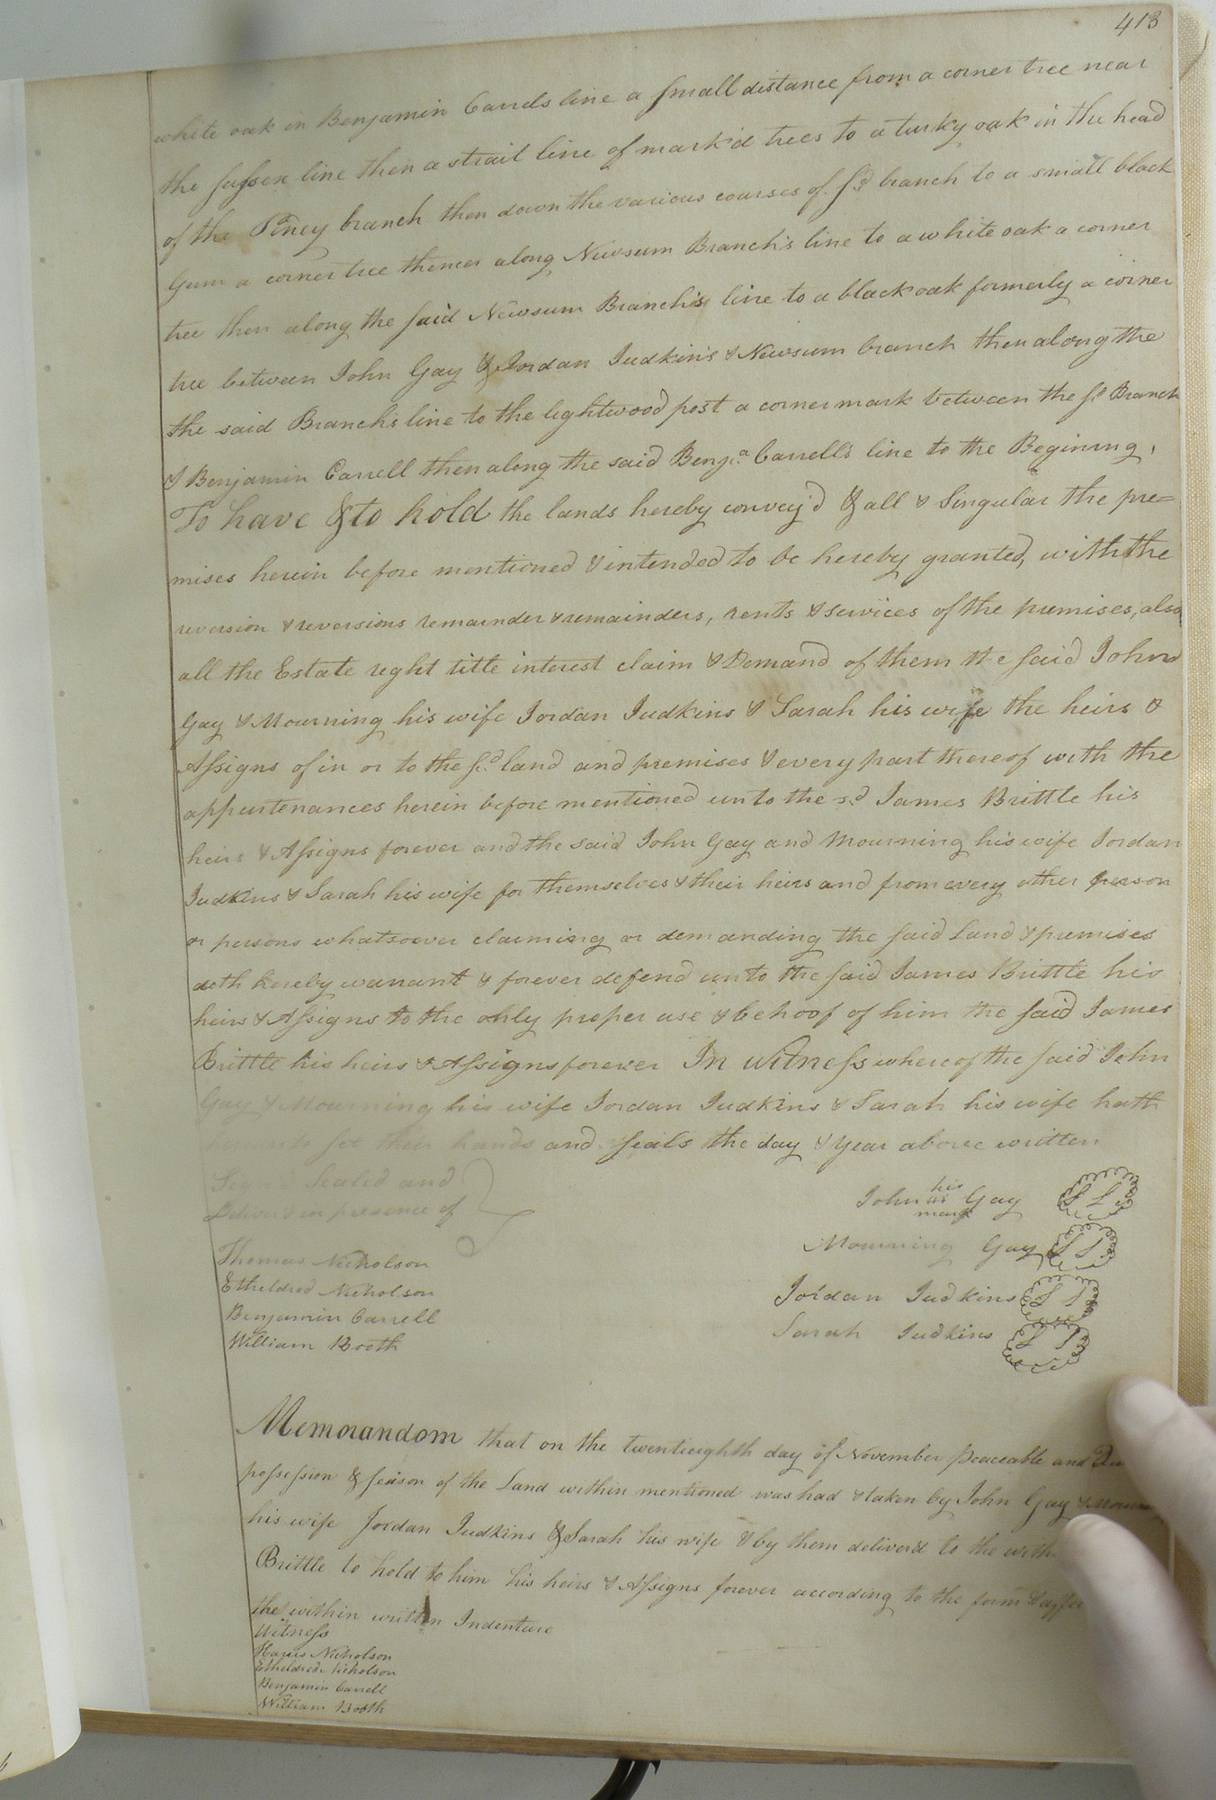 413
white oak in Benjamin Carrels line a small distance from a corner tree near
the Sussex line then a strait line of mark'd trees to a turky oak in the head
of the Piney branch then down the various courses of sd branch to a small black
Gum a corner tree thence along Newsum Branch's line to a white oak a corner
tree then along the said Newsum Branch's line to a black oak formerly a corner
tree between John Gay & Jordan Judkin's & Newsum branch then along the
the said Branch's line to the lightwood post a corner mark between the sd Branch
& Benjamin Carrell then along the said Benja Carrells line to the Begining,
To have & to hold the lands hereby convey'd & all & Singular the pre=
mises herein before mentioned & intended to be hereby granted, with the
reversion & reversions remainder & remainders, rents & services of the premises, also
all the Estate right title interest claim & Demand of them the said John
Gay & Mourning his wife Jordan Judkins & Sarah his wife the heirs &
Assigns of in or to the sd land and premises & every part thereof with the
appurtenances herein before mentioned unto the sd James Brittle his
heirs & Assigns forever and the said John Gay and Mourning his wife Jordan
Judkins & Sarah his wife for themselves & their heirs and from every other person
or persons whatsoever claiming or demanding the said Land & premises
doth hereby warrant & forever defend unto the said James Brittle his
heirs & Assigns to the only proper use & behoof of him the said James
Brittle his heirs & Assigns forever In Witness whereof the said John
Gay & Mourning his wife Jordan Judkins & Sarah his wife hath
hereunto set their hands and seals the day & year above written
Sign'd Sealed and
Deliver'd in presence of
his
John Gay LS
mark
Mourning Gay LS
Thomas Nicholson
Etheldred Nicholson
Jordan Judkins LS
Benjamin Carrell
Sarah Judkins LS
William Booth
Memorandom that on the twentieighth day of November Peaceable and
possession & seison of the Land within mentioned was had & taken by John Gay &
his wife Jordan Judkins & Sarah his wife & by them deliverd to the
Brittle to hold to him his heirs & Assigns forever according to the form &
the within written Indenture
Witness
Nicholson
Etheldred Nicholson
Benjamin Carrell
William Booth